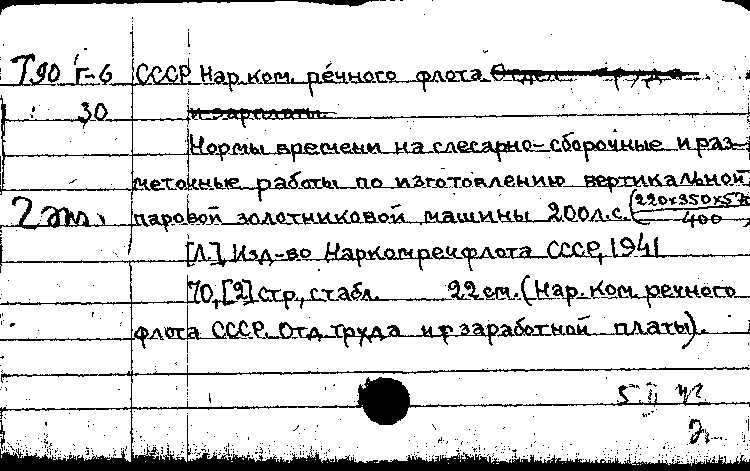 Т90 г-6 СССР Нар.ком. речного флота Отдел труда
30 и зарплаты.
Нормы времени на слесарно-сборочные и раз-
меточные работы по изготовлению вертикальной
2 эт. паровой золотниковой машины 200 л.с. (220х350х57
400
[Л.], Изд-во Наркомречфлота СССР, 1941
70, [2] стр., с табл. 22 см. (Нар. ком. речного
флота СССР. Отд. труда и заработной платы).
5 II 42